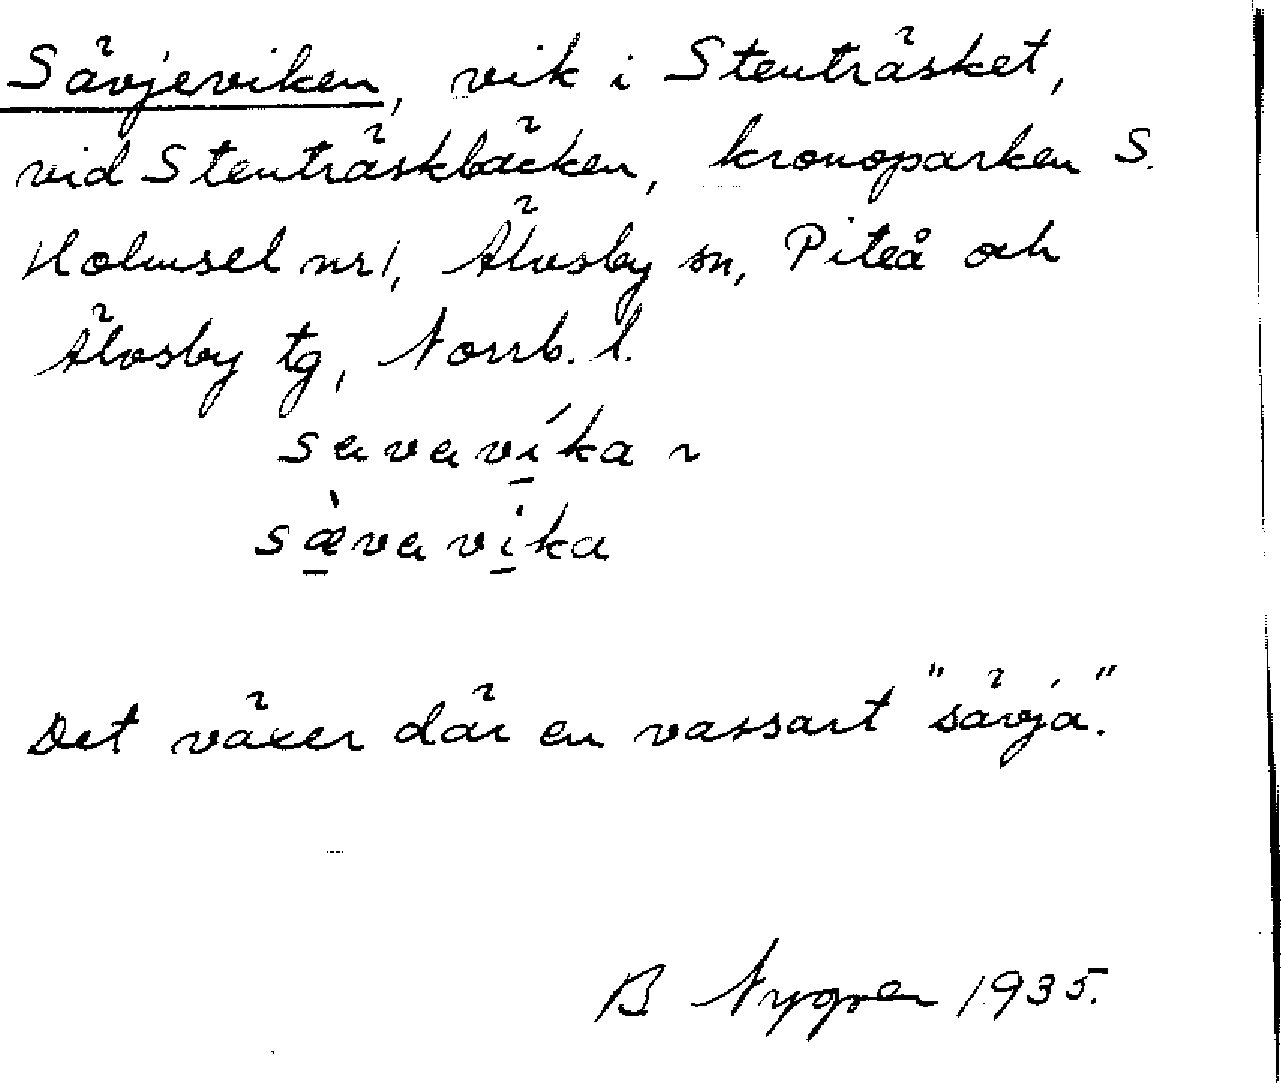 Sävjeviken, vik i Stenträsket,
vid Stenträskbäcken, kronoparken S.
Holmsel nr 1, Älvsby sn, Piteå och
Älvsby tg, Norrb. l.
savavíka ~
sæ̀vavika
Det växer där en vassart "sävja".
B Nygren 1935.